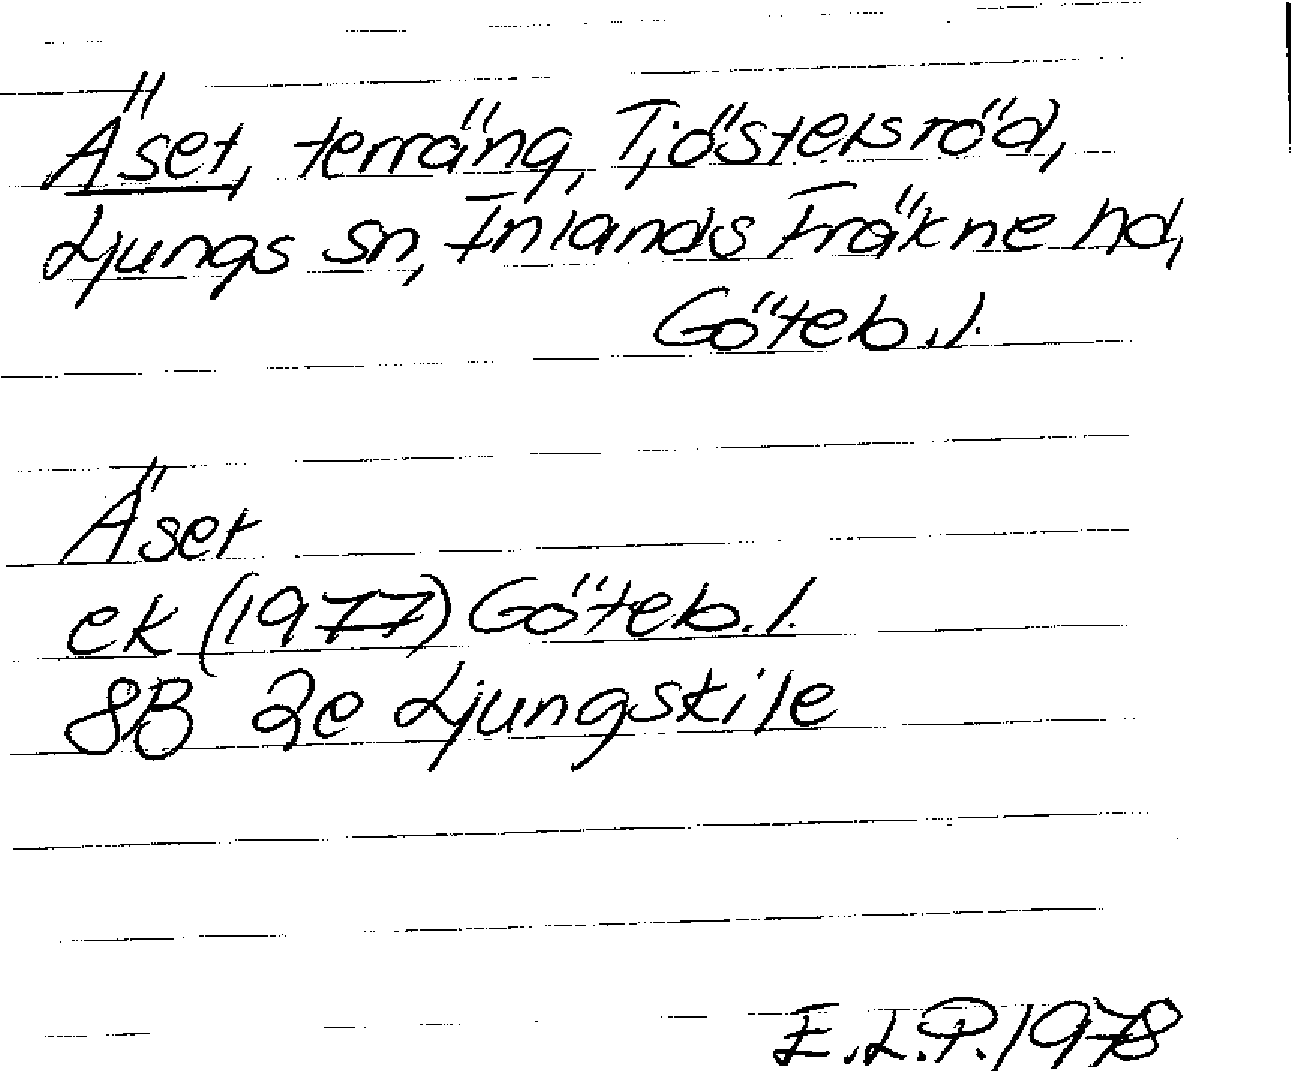 Äset, terräng, Tjöstelsröd,
Ljungs sn, Inlands Fräkne hd,
Göteb. l.
Äset
ek (1977) Göteb. l.
8B 2e Ljungskile
E.L.P. 1978